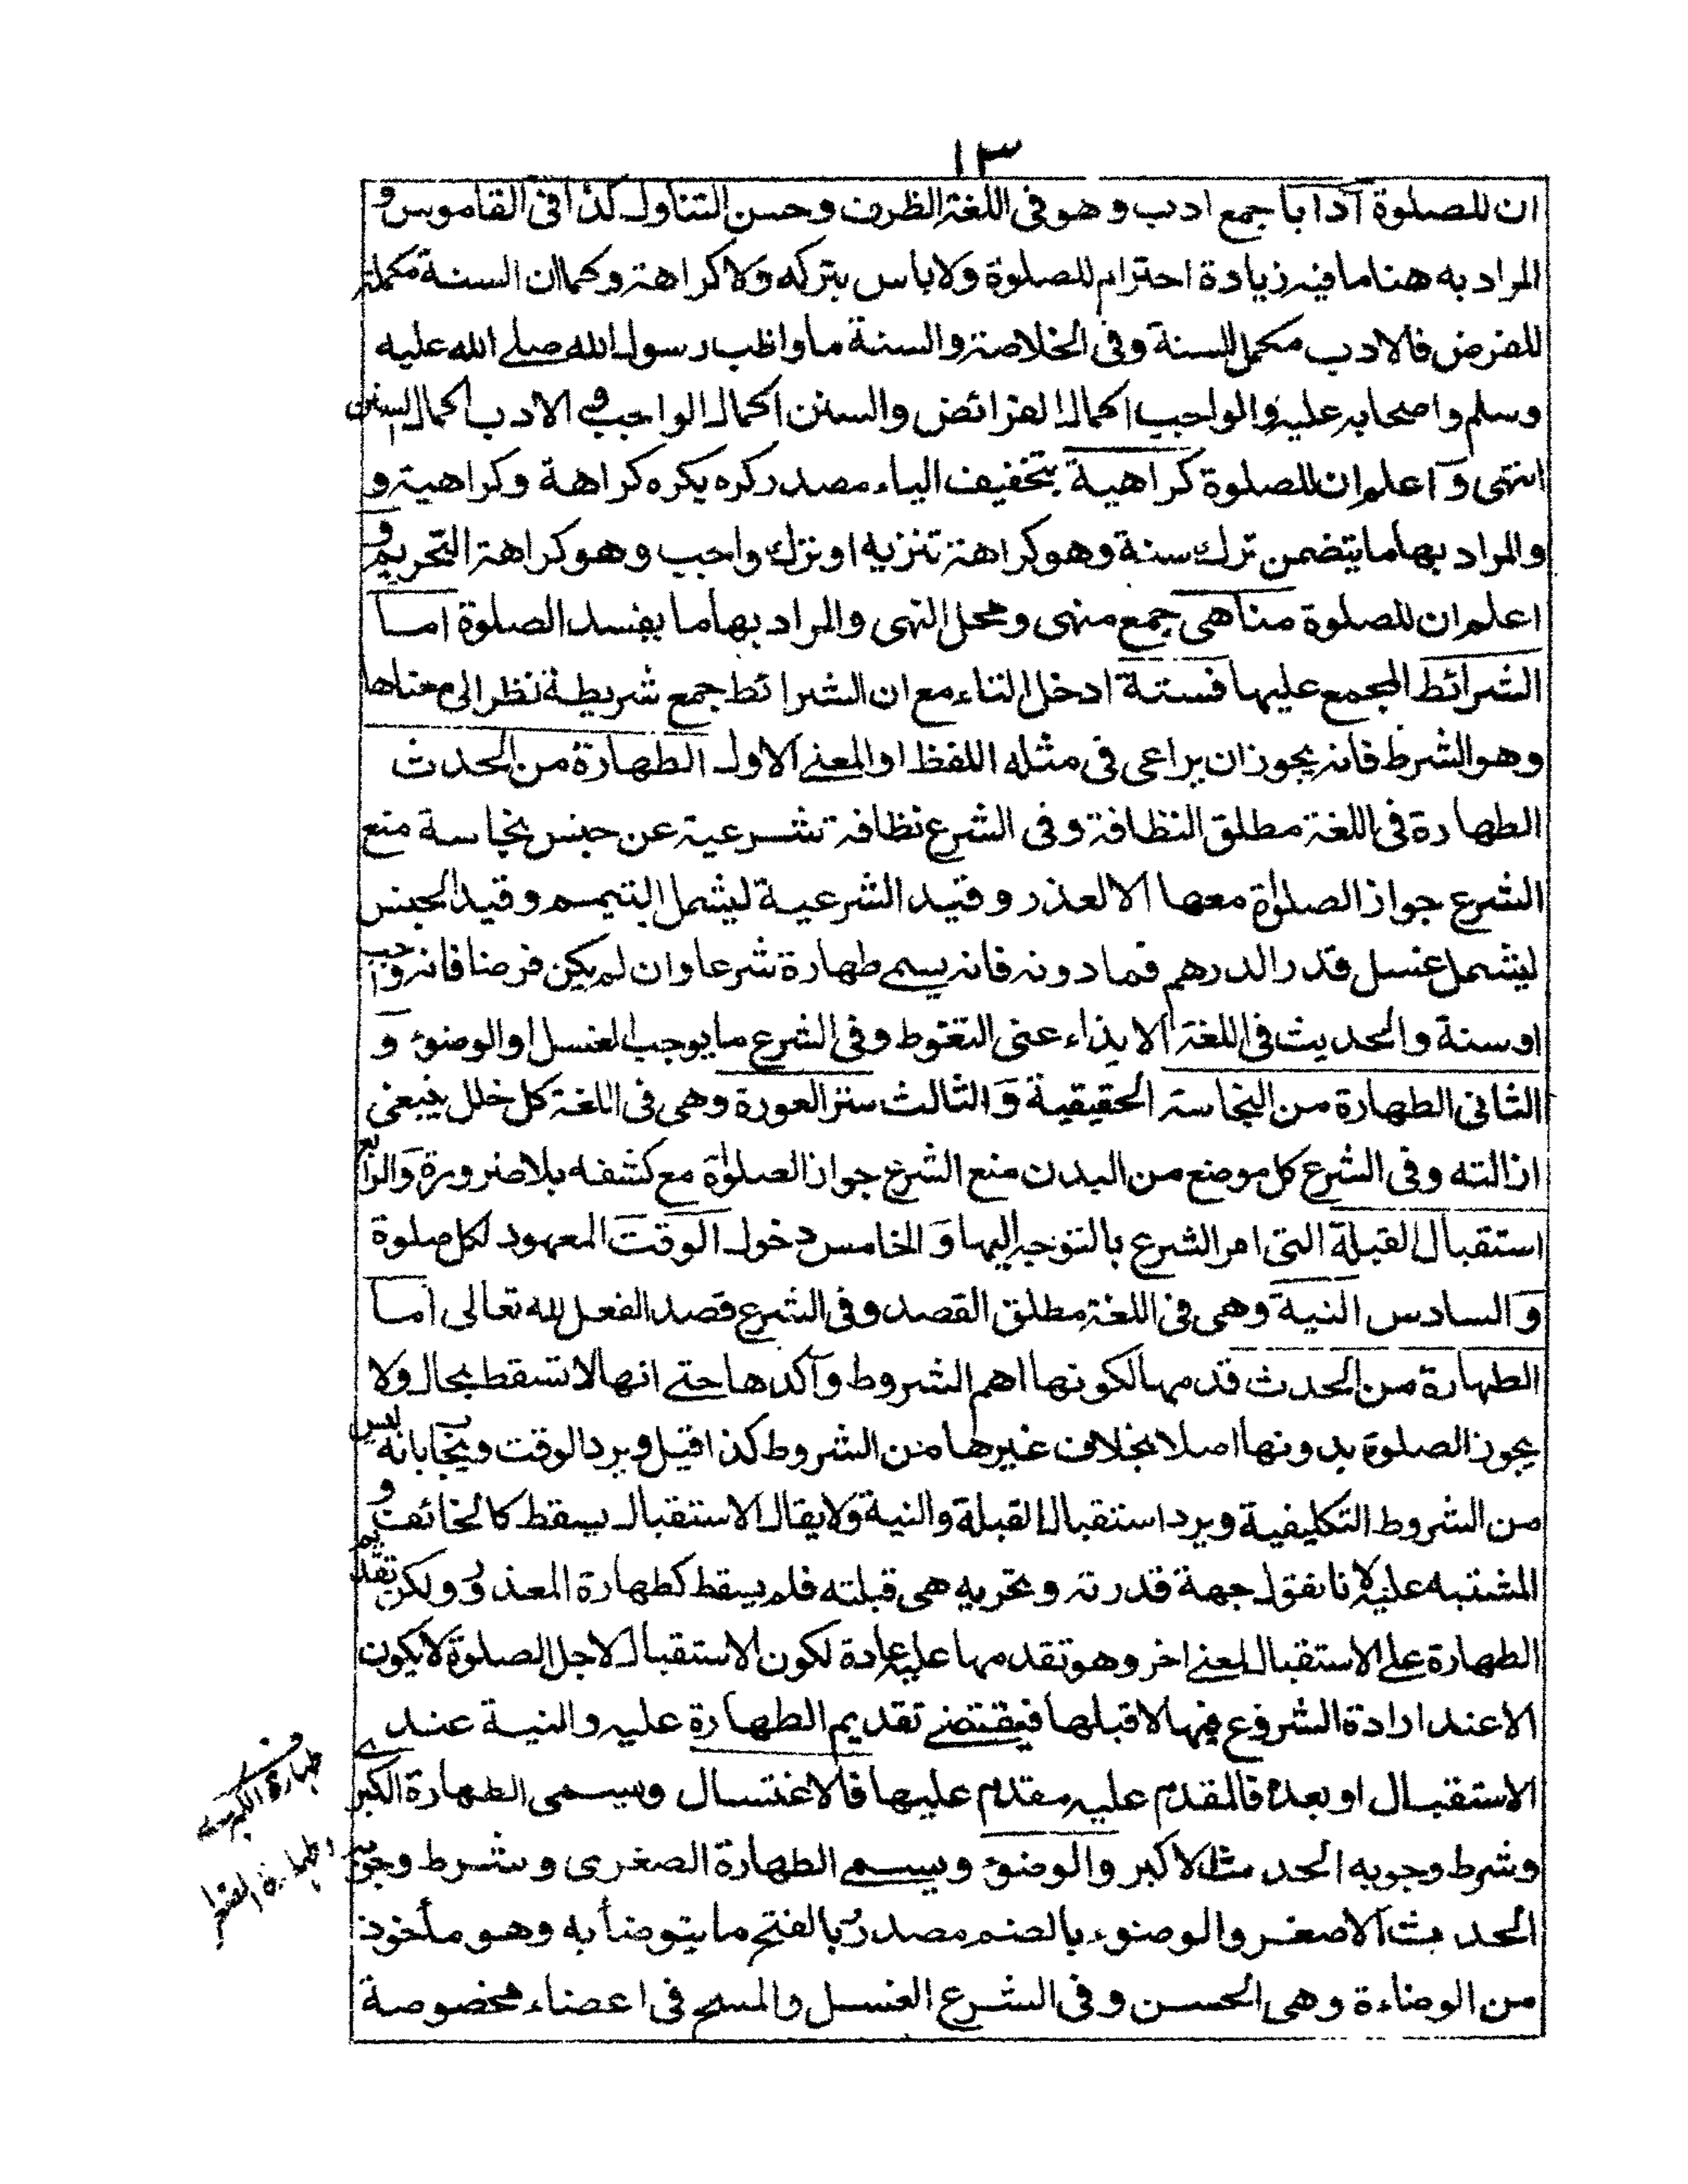 ١٣
ان للصلوة آدابا جمع ادب وهو فى اللغة الظرف وحسن التناول كذا فى القاموس و
المراد به هنا ما فيه زيادة احترام للصلوة ولا باس بتركه ولا كراهة وكما ان السنة مكملة
للفرض فالادب مكمل للسنة وفى الخلاصة والسنة ما واظب رسول الله صلے الله عليه
وسلم واصحابه عليه والواجب اكمال الفرائض والسنن اكمال الواجب و الادب اكمال السنن
انتهى و اعلم ان للصلوة كراهية بتخفيف الياء مصدر كره يكره كراهة وكراهية و
والمراد بها ما يتضمن ترك سنة وهو كراهة تنزيه او ترك واجب وهو كراهة التحريم و
اعلم ان للصلوة مناهى جمع منهى ومحل النهى والمراد بها ما يفسد الصلوة اما
الشرائط المجمع عليها فستة ادخل التاء مع ان الشرائط جمع شريطة نظر الى معناها
وهو الشرط فانه يجوز ان يراعى فى مثله اللفظ او المعنے الاول الطهارة من الحدث
الطهارة فى اللغة مطلق النظافة وفى الشرع نظافة شرعية عن جنس نجاسة منع
الشرع جواز الصلوة معها الا لعذر وقيد الشرعية ليشمل التيمم وقيد الجنس
ليشمل غسل قدر الدرهم فما دونه فانه يسمے طهارة شرعا وان لم يكن فرضا فانه واجب
او سنة والحديث فى اللغة الايذاء عنى التغوط وفى الشرع ما يوجب الغسل او الوضوء و
الثانى الطهارة من النجاسة الحقيقية و الثالث ستر العورة وهى فى اللغة كل خلل ينبغى
ازالته وفى الشرع كل موضع من البدن منع الشرع جواز الصلوة مع كشفه بلا ضرورة والرابع
استقبال القبلة التى امر الشرع بالتوجه اليها و الخامس دخول الوقت المعهود لكل صلوة
و السادس النية وهى فى اللغة مطلق القصد وفى الشرع قصد الفعل لله تعالى اما
الطهارة من الحدث قدمها لكونها اهم الشروط وآكدها حتے انها لا تسقط بحال ولا
يجوز الصلوة بدونها اصلا بخلاف غيرها من الشروط كذا قيل ويرد الوقت ويجاب بانه ليس
من الشروط التكليفية ويرد استقبال القبلة والنية ولا يقال الاستقبال يسقط كالخائف و
المشتبه عليه لانا نقول جهة قدرته وتحريه هى قبلته فلم يسقط كطهارة المعذور ولكن تقديم
الطهارة علے الاستقبال لمعنے اخر وهو تقدمها عليه عادة لكون الاستقبال لاجل الصلوة لا يكون
الا عند ارادة الشروع فيها لا قبلها فيقتضے تقديم الطهارة عليه والنية عند
الاستقبال او بعده فالمقدم عليه مقدم عليها فالاغتسال ويسمى الطهارة الكبرے
وشرط وجوبه الحدث الاكبر والوضوء ويسمے الطهارة الصغرى وشرط وجوبه
الحدث الاصغر والوضوء بالضم مصدر بالفتح ما يتوضأ به وهو مأخوذ
من الوضاءة وهى الحسن وفى الشرع الغسل والمسح فى اعضاء مخصوصة
طهارة الكبرے